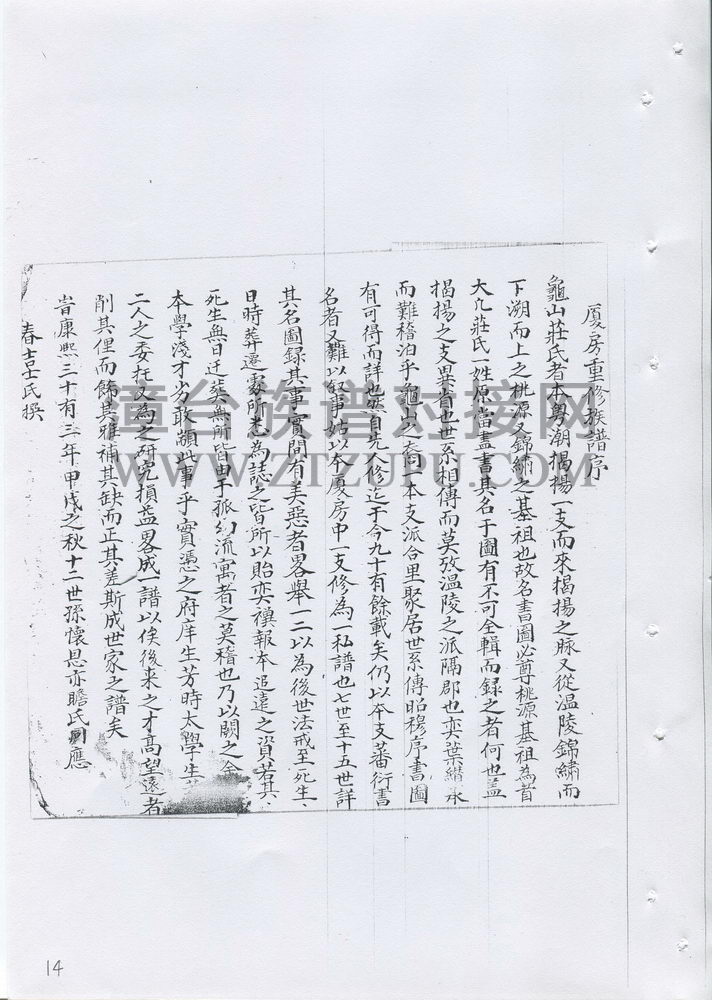 厦房重修族譜序
龜山莊氏者本粵潮揭揚一支而來揭揚之脉又從温陵錦繡而
下溯而上之桃源又錦繡之基祖也故名書圖必尊桃源基祖為首
大凢莊氏一姓原當盡書其名于圖有不可全輯而錄之者何也蓋
揭揚之支異省也世系相傳而莫攷温陵之派隔郡也奕葉緒永
而難稽泊乎龜山之裔同本支派合里聚居世系傳昭穆序書圖
有可得而詳也第自先人修迄于今九十有餘載矣仍以本支蕃衍書
名者又難以叙事姑以本厦房中一支修為一私譜也七世至十五世詳
其名圖錄其事實間有美惡者畧舉一二以為後世法戒至死生、
日時葬遷處所尤為誌之皆所以貽奕禩報本追遠之資若其、
死生無日迁葬無所皆由于孤幼流寓者之莫稽也乃以闕之余
本學淺才劣敢顓此事乎實憑之府庠生芳時太學生
二人之委托又為之研究損益畧成一譜以俟後来之才高望遠者
削其俚而飾其雅補其缺而正其差斯成世家之譜矣
旹康熙三十有三年甲戌之秋十二世孫懷恩亦瞻氏同應
春吉士氏撰
漳台族谱对接网
WWW.ZTZUPU.COM
14